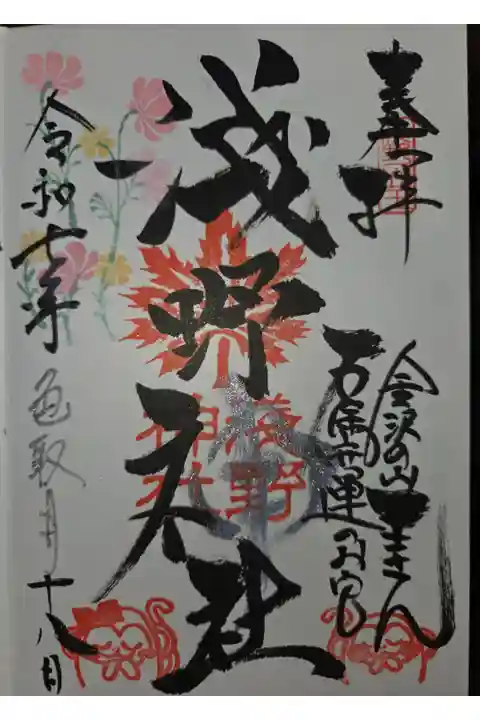 奉拝
金沢の山王さん
運のお宮
浅野神社
淺野
神社
令和七年色取月十八日